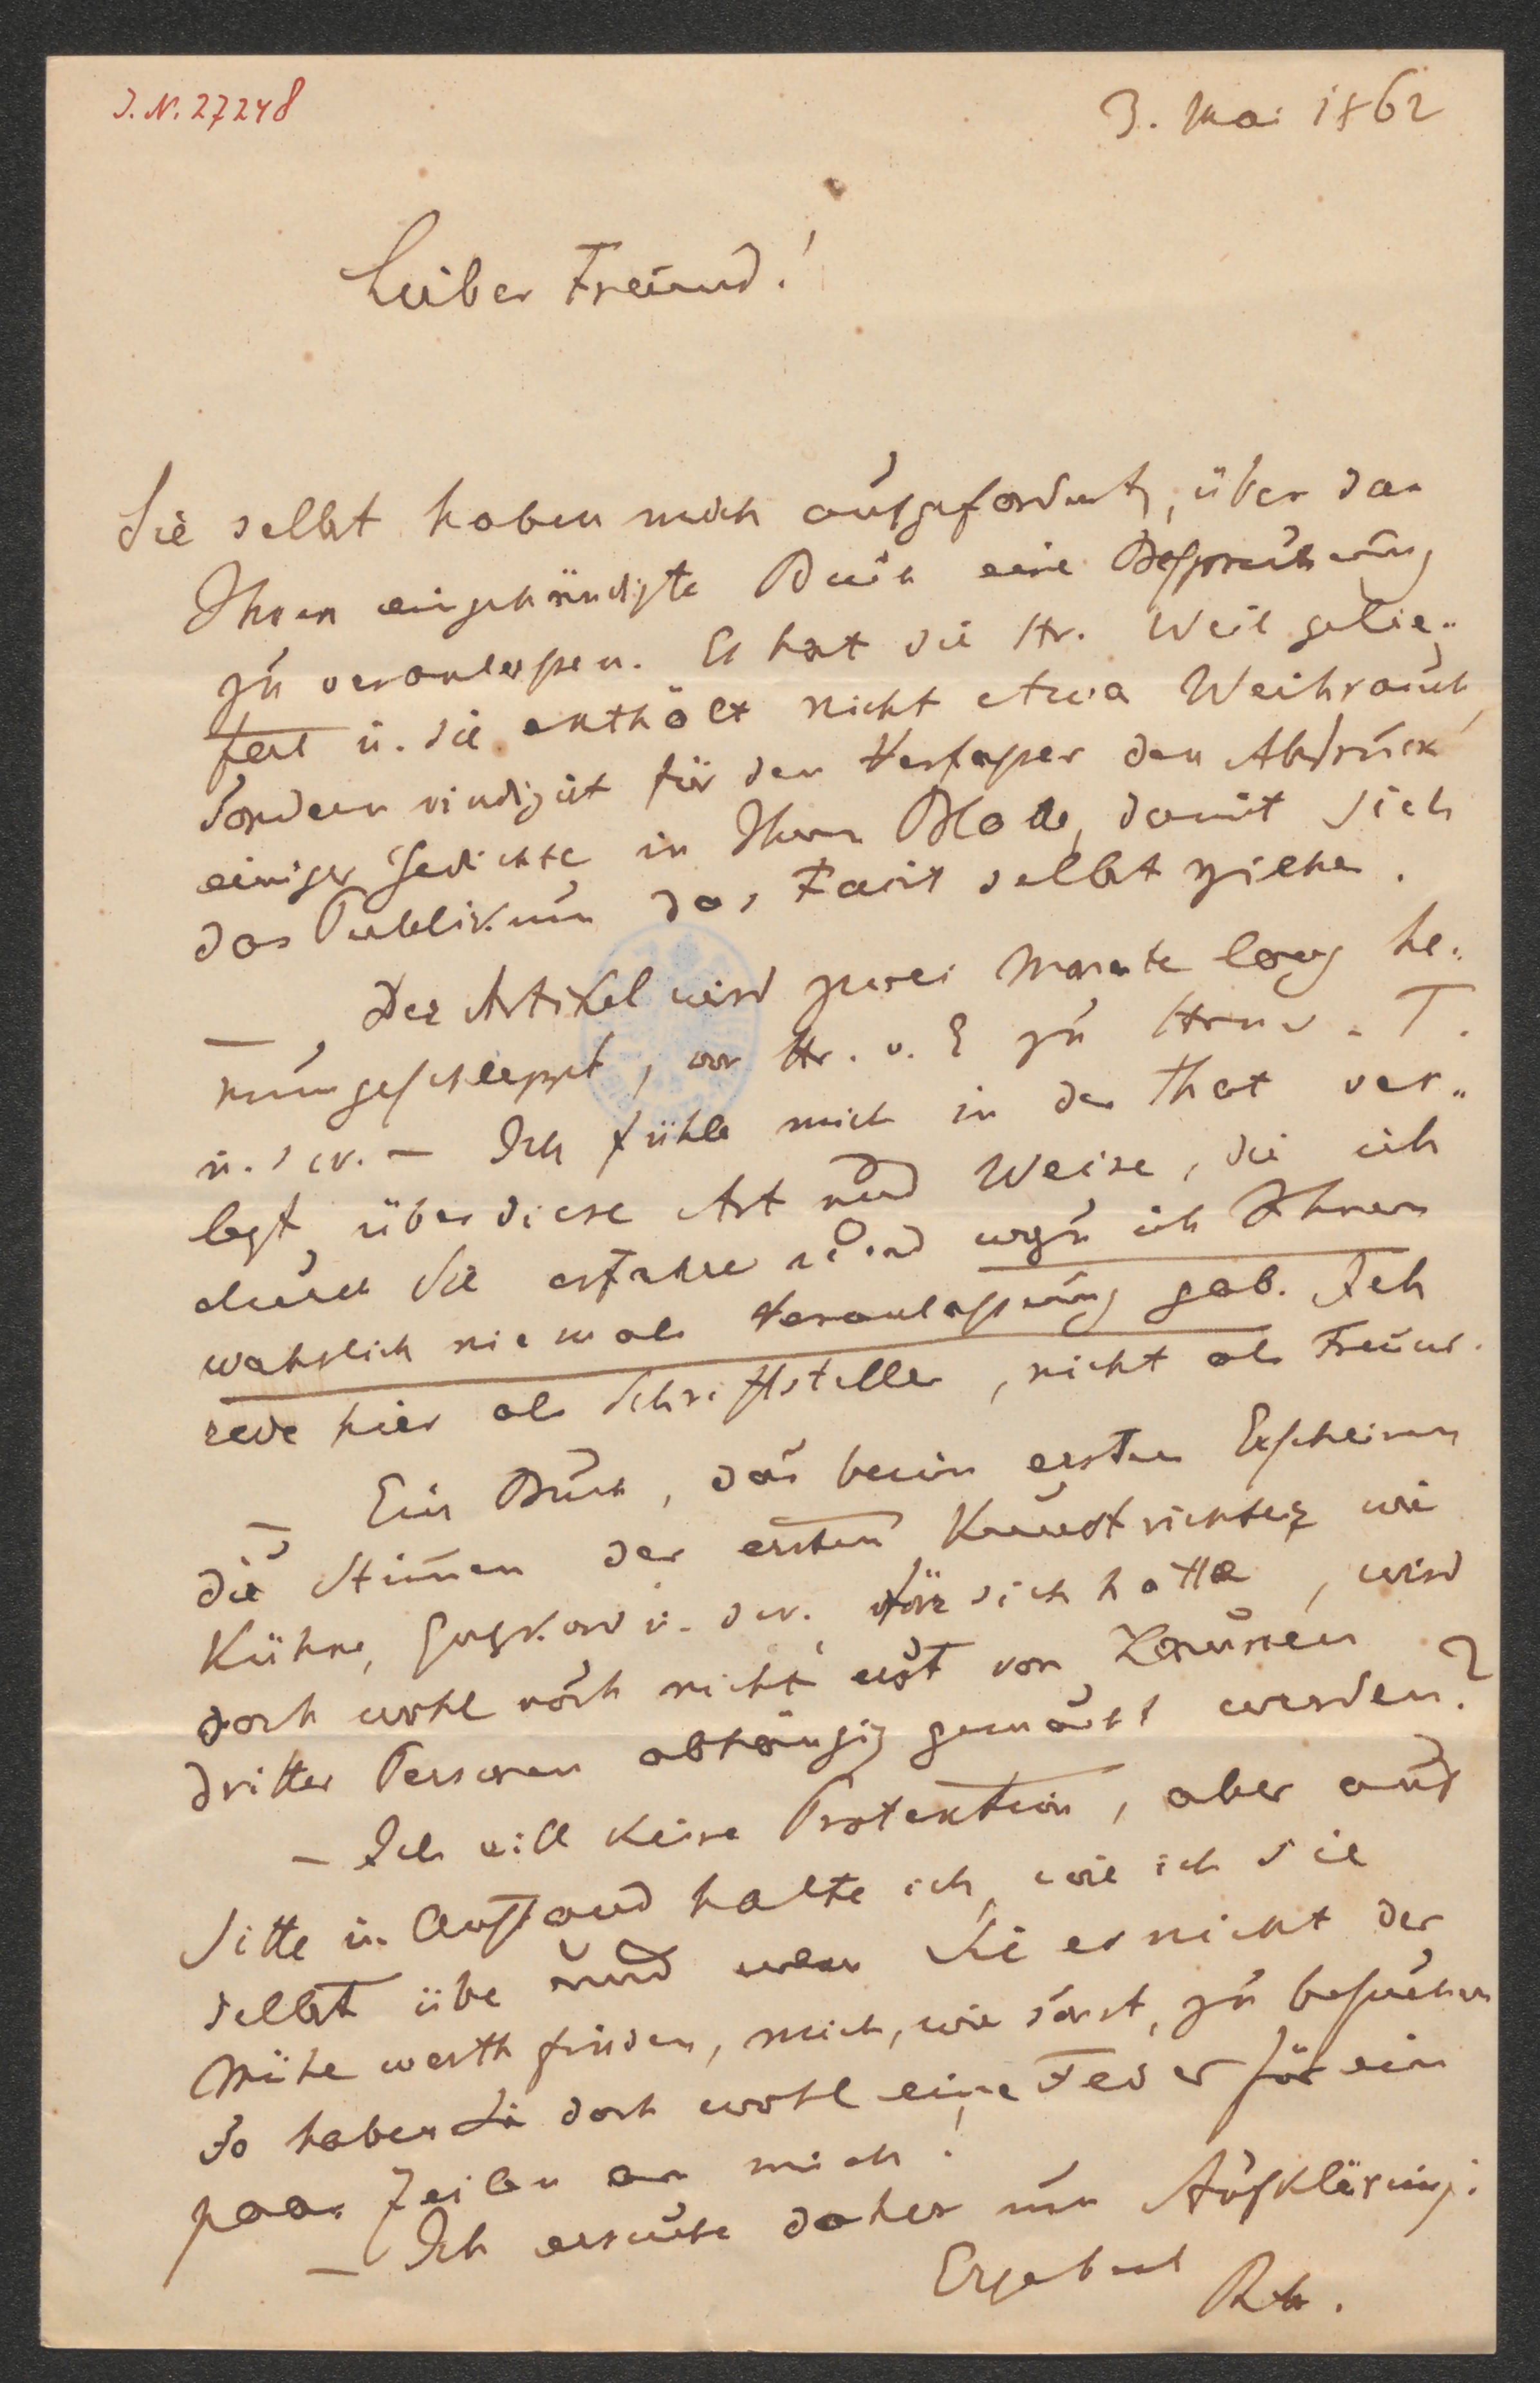 I.N. 27248
3. Mai 1862
Lieber Freund!
Sie selbst haben mich aufgefordert, über das
Ihnen eingehändigte Buch eine Besprechung
zu veranlaßen. Es hat sie Hr. Weil gelie„
fert u. sie enthält nicht etwa Weihrauch
sondern vindizirt für den Verfaßer den Abdruck
einiger Gedichte in Ihrem Blatte, damit sich
das Publikum das Facit selbst ziehe.
— Der Artikel wird zwei Monate lang he„
rumgeschleppt, von Hr. v. E zu Hrn v. T.
u. s w. — Ich fühle mich in der That ver„
letzt über diese Art und Weise, die ich
durch Sie erfahre und wozu ich Ihnen
wahrlich niemals Veranlaßung gab. Ich
rede hier als Schriftsteller, nicht als Freund.
— Ein Buch, das beim ersten Erscheinen
die Stim̄en der ersten Kunstrichter wie
Kühne, Gutzkow u. s w. für sich hatte, wird
doch wohl noch nicht erst von
dritter Personen abhängig gemacht werden?
— Ich will keine Protektion, aber auf
Sitte u. Anstand halte ich, wie ich sie
selbst übe und wenn Sie es nicht der
Mühe werth finden, mich, wie sonst, zu besuchen
so haben Sie doch wohl eine Feder für ein
paar Zeilen an mich!
— Ich ersuche daher um Aufklärung.
Ergebenst